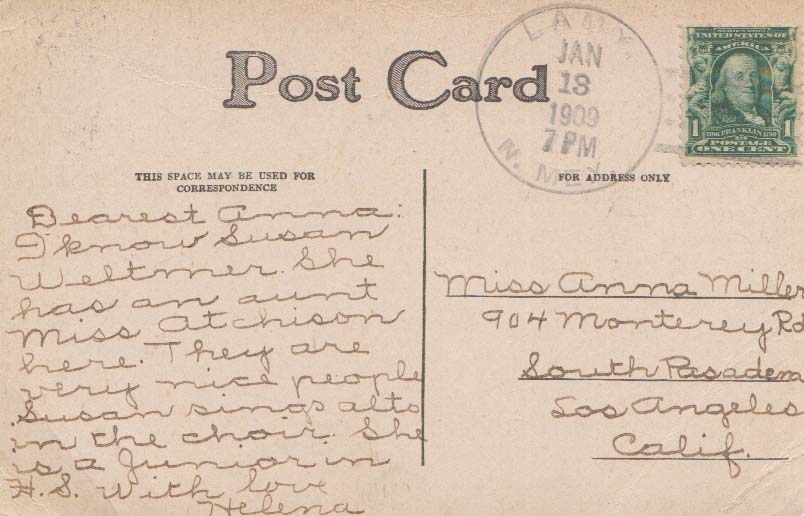 Post Card
LAMY
JAN
13
1909
7 PM
N. MEX.
SERIES 1902
UNITED STATES OF
AMERICA
1 FRANKLIN 1
POSTAGE
ONE CENT
THIS SPACE MAY BE USED FOR
CORRESPONDENCE
FOR ADDRESS ONLY
Dearest Anna:
I know Susan
Weltmer. She
has an aunt
Miss Atchison
here. They are
very nice people
Susan sings alto
in the choir. She
is a Junior in
H.S. With love
Helena
Miss Anna Miller
904 Monterey Rd
South Pasadena
Los Angeles
Calif.